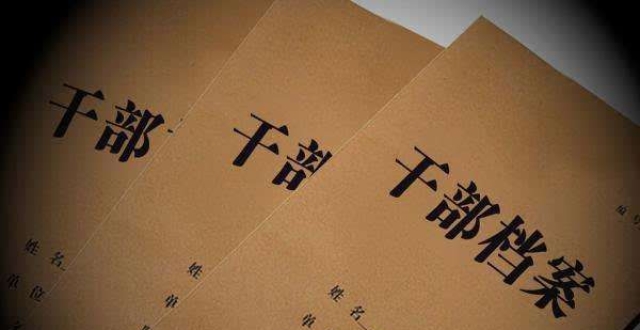 干部
姓名
单位
干部
姓名
单
干部档案
编号
姓名
单